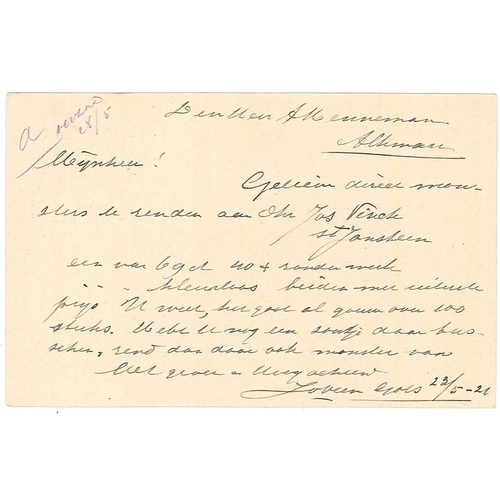 Den Heer A Menneman
Alkmaar
Mijnheer!
Gelieve direct mon-
sters te zenden aan Dhr Jos Vinck
St Jansteen
een van 40 + zonder merk
beiden met uiterste
prijs U weet, het gaat al gauw over 100
stuks. Hebt U nog een soortje daar tus-
schen, zend dan daar ook monster van
Met groet & Hoogachtend
22/5 - 21
verzo
28/5